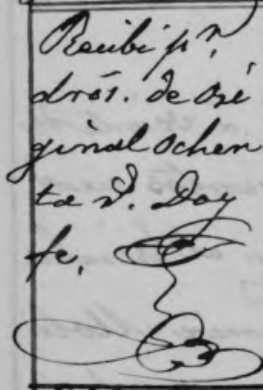 Recibi pr.
drós. de ori
ginal ochen
ta r. Doy
fe.